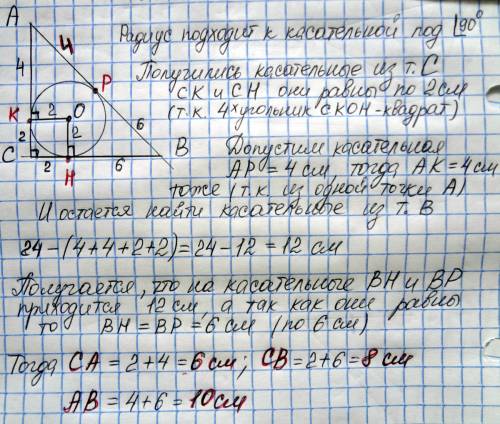 Радиус подходит к касательной под ∟90°
Получились касательные из т. С
СК и СН они равны по 2см
(т.к. 4хугольник СКОН-квадрат)
Допустим касательная
АР = 4 см, тогда АК = 4 см
тоже (т.к. из одной точки А)
И остается найти касательные из т. В
24-(4+4+2+2)=24-12=12 см
Получается, что на касательные ВН и ВР
приходится 12 см, а так как они равны
то ВН = ВР = 6 см (по 6 см)
Тогда СА = 2+4 = 6 см; СВ = 2+6 = 8 см
АВ = 4+6 = 10 см
А
4
4
Р
К
2
О
2
2
6
С
2
Н
6
В